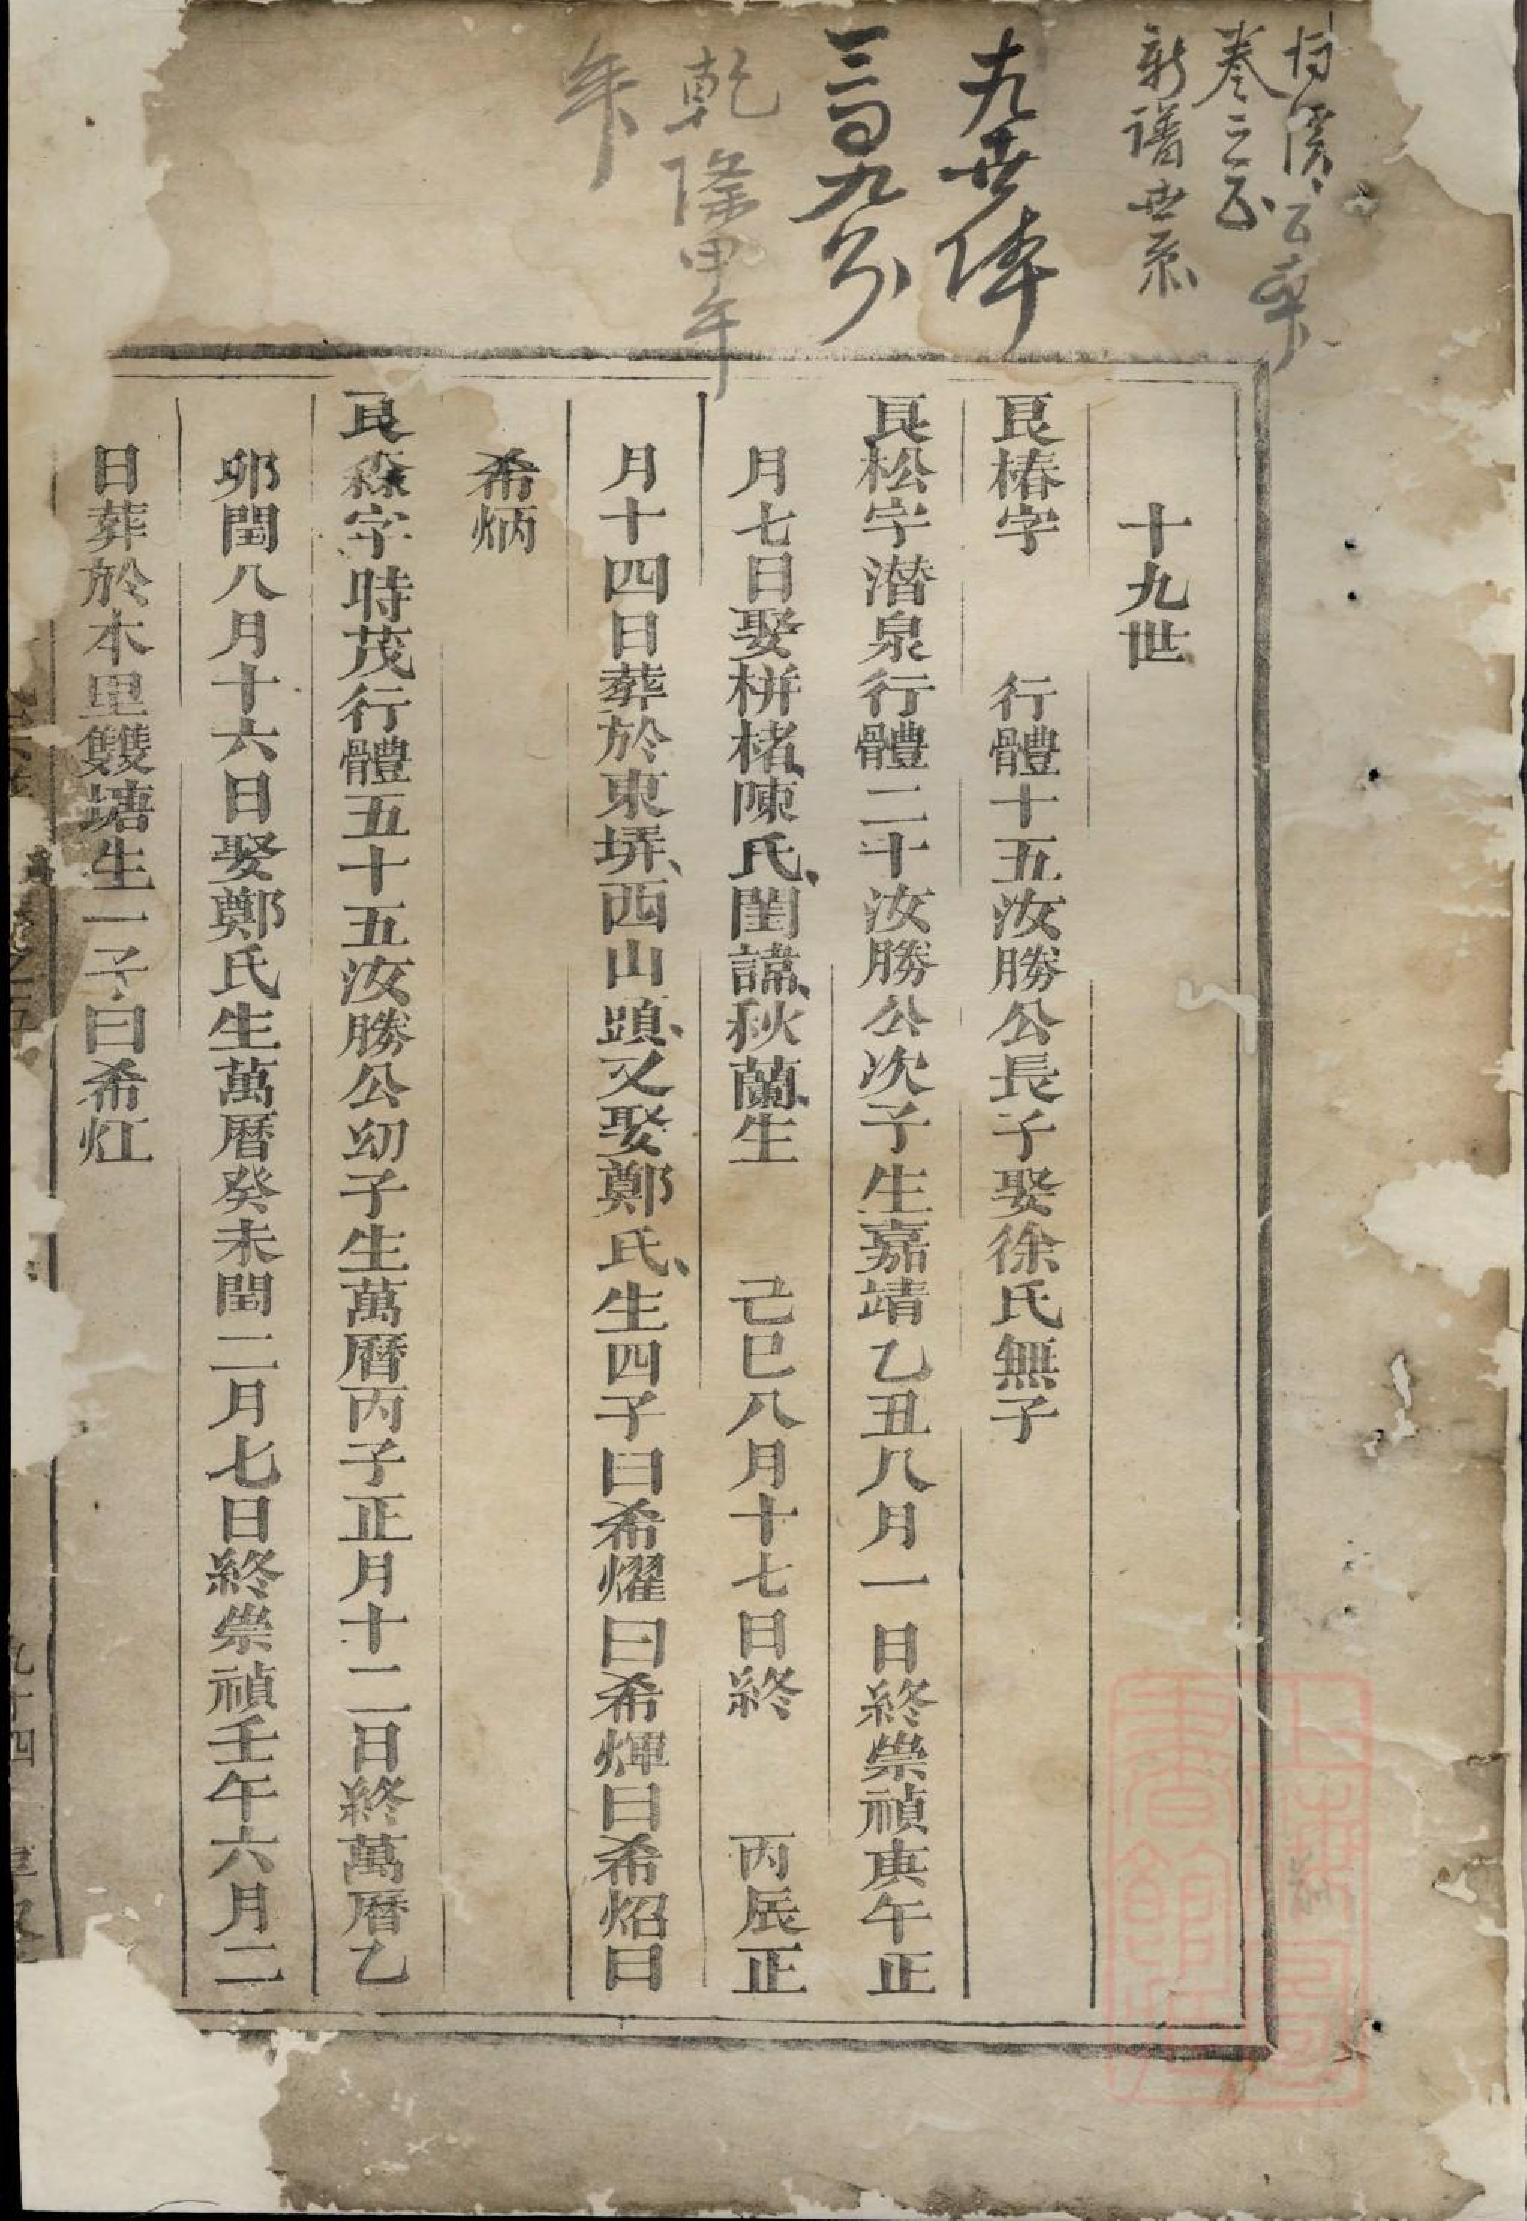 卷之五
新譜世系
九世俸
乾隆甲年
年
十九世
良椿字　　行體十五汝勝公長子娶徐氏無子
良松字潛泉行體二十汝勝公次子生嘉靖乙丑八月一日終崇禎庚午正
月七日娶栟楮陳氏閨諱秋蘭生　　己巳八月十七日終　　丙辰正
月十四日葬於東塀西山頭又娶鄭氏生四子曰希燿曰希煇曰希炤曰
希炳
良森字時茂行體五十五汝勝公幼子生萬曆丙子正月十二日終萬曆乙
卯閏八月十六日娶鄭氏生萬曆癸未閏二月七日終崇禎壬午六月二
日葬於本里雙塘生一子曰希灴
九十四
上海圖
書館藏